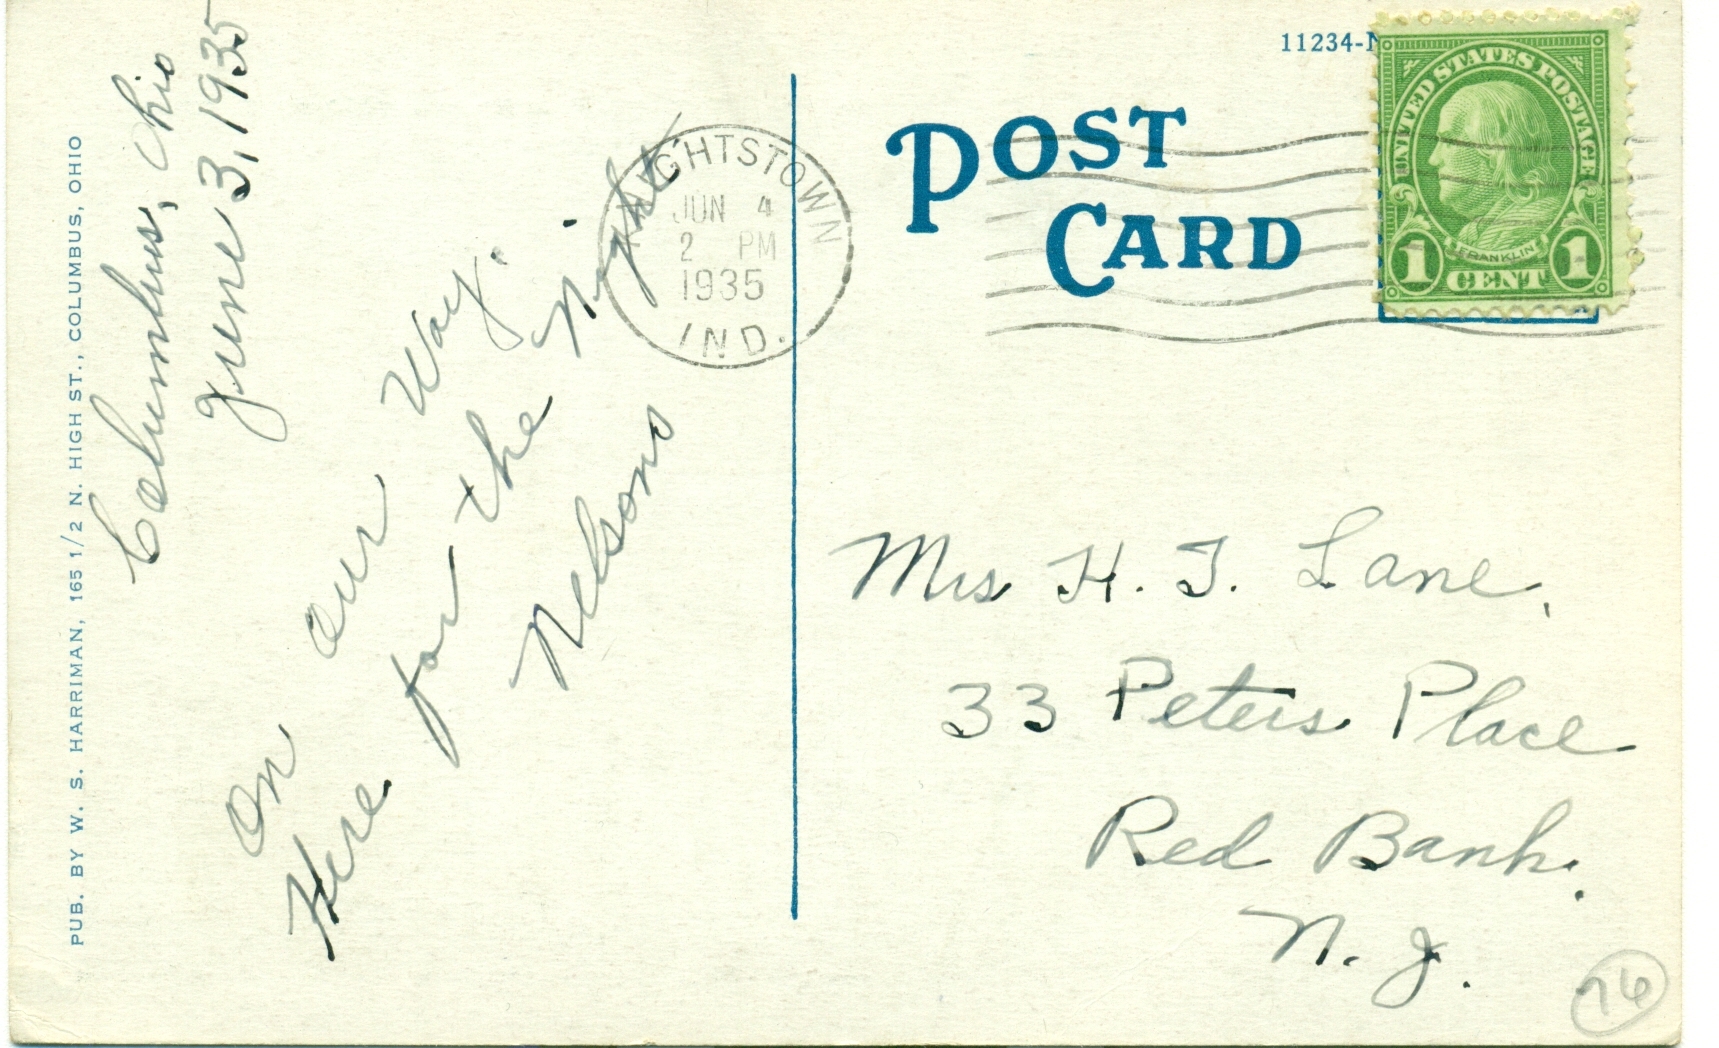 PUB. BY W. S. HARRIMAN, 165 1/2 N. HIGH ST., COLUMBUS, OHIO
Columbus, Ohio
June 3, 1935
On our Way.
Here for the Night.
Nelsons
KNIGHTSTOWN
JUN 4
2 PM
1935
IND.
11234-N
POST
CARD
UNITED STATES POSTAGE
FRANKLIN
1 CENT 1
Mrs H. T. Lane,
33 Peters Place
Red Bank.
N. J.
76